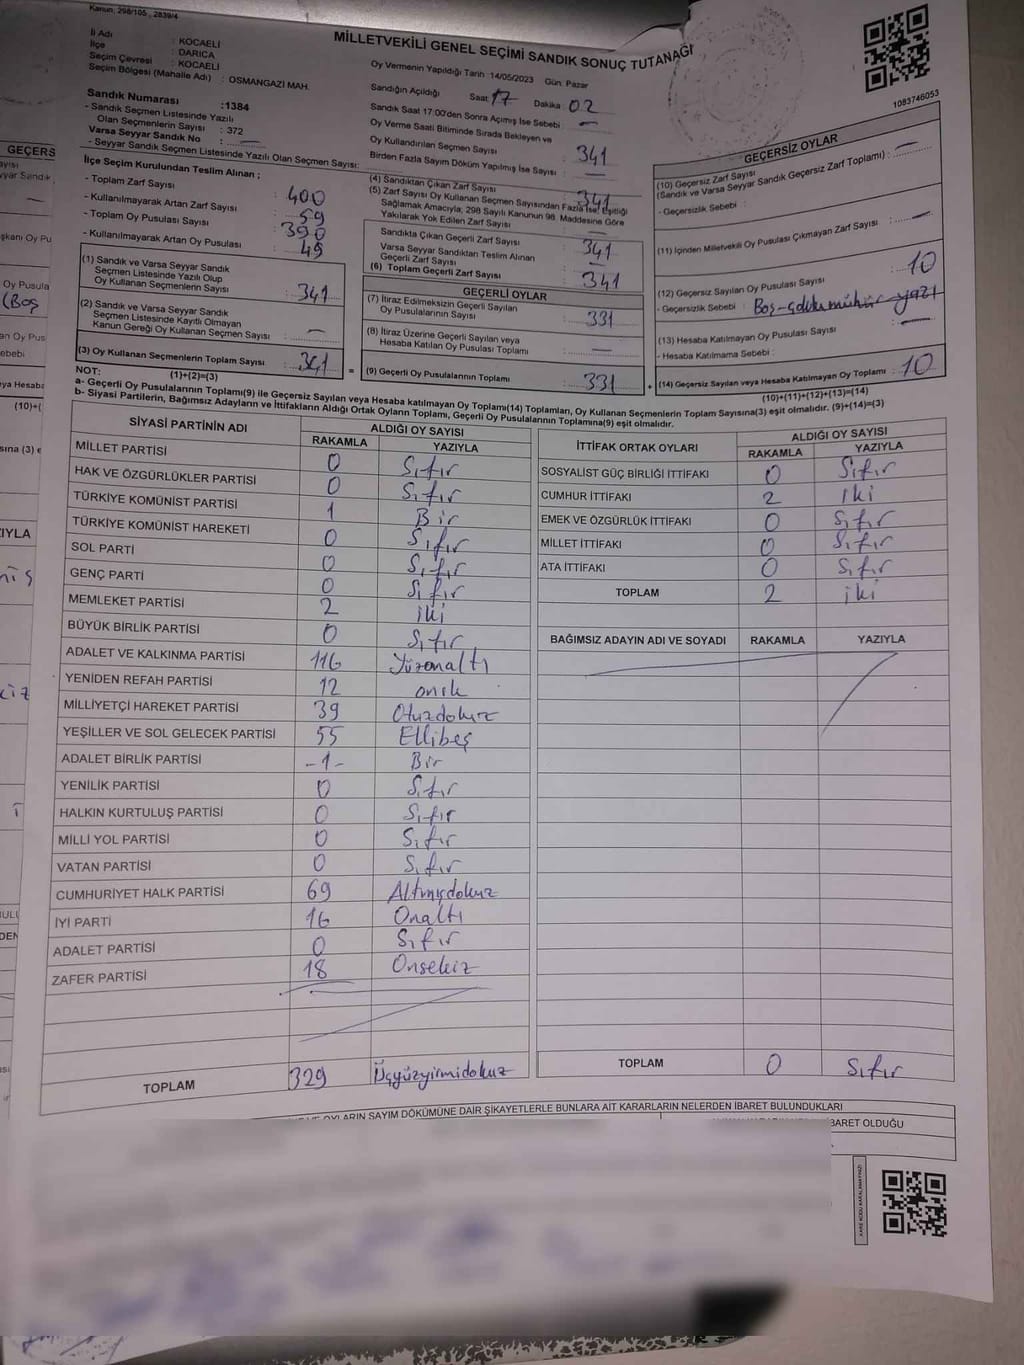 Kanun: 298/105 , 2839/4
İl Adı : KOCAELİ
İlçe : DARICA
Seçim Çevresi : KOCAELİ
Seçim Bölgesi (Mahalle Adı) : OSMANGAZİ MAH.
MİLLETVEKİLİ GENEL SEÇİMİ SANDIK SONUÇ TUTANAĞI
Oy Vermenin Yapıldığı Tarih :14/05/2023 Gün: Pazar
1083746053
Sandık Numarası :1384
- Sandık Seçmen Listesinde Yazılı
Olan Seçmenlerin Sayısı : 372
Varsa Seyyar Sandık No : —
- Seyyar Sandık Seçmen Listesinde Yazılı Olan Seçmen Sayısı:
Sandığın Açıldığı Saat: 17 Dakika: 02
Sandık Saat 17:00'den Sonra Açımış İse Sebebi : —
Oy Verme Saati Bitiminde Sırada Bekleyen ve
Oy Kullandırılan Seçmen Sayısı : 341
Birden Fazla Sayım Döküm Yapılmış İse Sayısı : —
İlçe Seçim Kurulundan Teslim Alınan ;
- Toplam Zarf Sayısı : 400
- Kullanılmayarak Artan Zarf Sayısı : 59
- Toplam Oy Pusulası Sayısı : 390
- Kullanılmayarak Artan Oy Pusulası : 49
(1) Sandık ve Varsa Seyyar Sandık
Seçmen Listesinde Yazılı Olup
Oy Kullanan Seçmenlerin Sayısı : 341
(2) Sandık ve Varsa Seyyar Sandık
Seçmen Listesinde Kayıtlı Olmayan
Kanun Gereği Oy Kullanan Seçmen Sayısı : —
(3) Oy Kullanan Seçmenlerin Toplam Sayısı : 341
(1)+(2)=(3)
(4) Sandıktan Çıkan Zarf Sayısı : 341
(5) Zarf Sayısı Oy Kullanan Seçmen Sayısından Fazla İse, Eşitliği
Sağlamak Amacıyla, 298 Sayılı Kanunun 98. Maddesine Göre
Yakılarak Yok Edilen Zarf Sayısı : —
Sandıkta Çıkan Geçerli Zarf Sayısı : 341
Varsa Seyyar Sandıktan Teslim Alınan
Geçerli Zarf Sayısı : —
(6) Toplam Geçerli Zarf Sayısı : 341
GEÇERLİ OYLAR
(7) İtiraz Edilmeksizin Geçerli Sayılan
Oy Pusulalarının Sayısı : 331
(8) İtiraz Üzerine Geçerli Sayılan ve
Hesaba Katılan Oy Pusulası Toplamı : —
(9) Geçerli Oy Pusulalarının Toplamı : 331
GEÇERSİZ OYLAR
(10) Geçersiz Zarf Sayısı
(Sandık ve Varsa Seyyar Sandık Geçersiz Zarf Toplamı) : —
- Geçersizlik Sebebi :
(11) İçinden Milletvekili Oy Pusulası Çıkmayan Zarf Sayısı : —
(12) Geçersiz Sayılan Oy Pusulası Sayısı : 10
- Geçersizlik Sebebi : Boş - mühür - yazı
(13) Hesaba Katılmayan Oy Pusulası Sayısı : —
- Hesaba Katılmama Sebebi :
(14) Geçersiz Sayılan veya Hesaba Katılmayan Oy Toplamı : 10
(10)+(11)+(12)+(13)=(14)
NOT:
a- Geçerli Oy Pusulalarının Toplamı(9) ile Geçersiz Sayılan veya Hesaba katılmayan Oy Toplamı(14) Toplamları, Oy Kullanan Seçmenlerin Toplam Sayısına(3) eşit olmalıdır. (9)+(14)=(3)
b- Siyasi Partilerin, Bağımsız Adayların ve İttifakların Aldığı Ortak Oyların Toplamı, Geçerli Oy Pusulalarının Toplamına(9) eşit olmalıdır.
SİYASİ PARTİNİN ADI ALDIĞI OY SAYISI
RAKAMLA YAZIYLA
MİLLET PARTİSİ 0 Sıfır
HAK VE ÖZGÜRLÜKLER PARTİSİ 0 Sıfır
TÜRKİYE KOMÜNİST PARTİSİ 1 Bir
TÜRKİYE KOMÜNİST HAREKETİ 0 Sıfır
SOL PARTİ 0 Sıfır
GENÇ PARTİ 0 Sıfır
MEMLEKET PARTİSİ 2 iki
BÜYÜK BİRLİK PARTİSİ 0 Sıfır
ADALET VE KALKINMA PARTİSİ 116 Yüzonaltı
YENİDEN REFAH PARTİSİ 12 onik
MİLLİYETÇİ HAREKET PARTİSİ 39 Otuzdokuz
YEŞİLLER VE SOL GELECEK PARTİSİ 55 Ellibeş
ADALET BİRLİK PARTİSİ -1- Bir
YENİLİK PARTİSİ 0 Sıfır
HALKIN KURTULUŞ PARTİSİ 0 Sıfır
MİLLİ YOL PARTİSİ 0 Sıfır
VATAN PARTİSİ 0 Sıfır
CUMHURİYET HALK PARTİSİ 69 Altmışdokuz
İYİ PARTİ 16 Onaltı
ADALET PARTİSİ 0 Sıfır
ZAFER PARTİSİ 18 Onsekiz
TOPLAM 329 Üçyüzyirmidokuz
İTTİFAK ORTAK OYLARI ALDIĞI OY SAYISI
RAKAMLA YAZIYLA
SOSYALİST GÜÇ BİRLİĞİ İTTİFAKI 0 Sıfır
CUMHUR İTTİFAKI 2 iki
EMEK VE ÖZGÜRLÜK İTTİFAKI 0 Sıfır
MİLLET İTTİFAKI 0 Sıfır
ATA İTTİFAKI 0 Sıfır
TOPLAM 2 iki
BAĞIMSIZ ADAYIN ADI VE SOYADI RAKAMLA YAZIYLA
TOPLAM 0 Sıfır
VE OYLARIN SAYIM DÖKÜMÜNE DAİR ŞİKAYETLERLE BUNLARA AİT KARARLARIN NELERDEN İBARET BULUNDUKLARI
İBARET OLDUĞU
KARE KODU KARALAMAYINIZ!